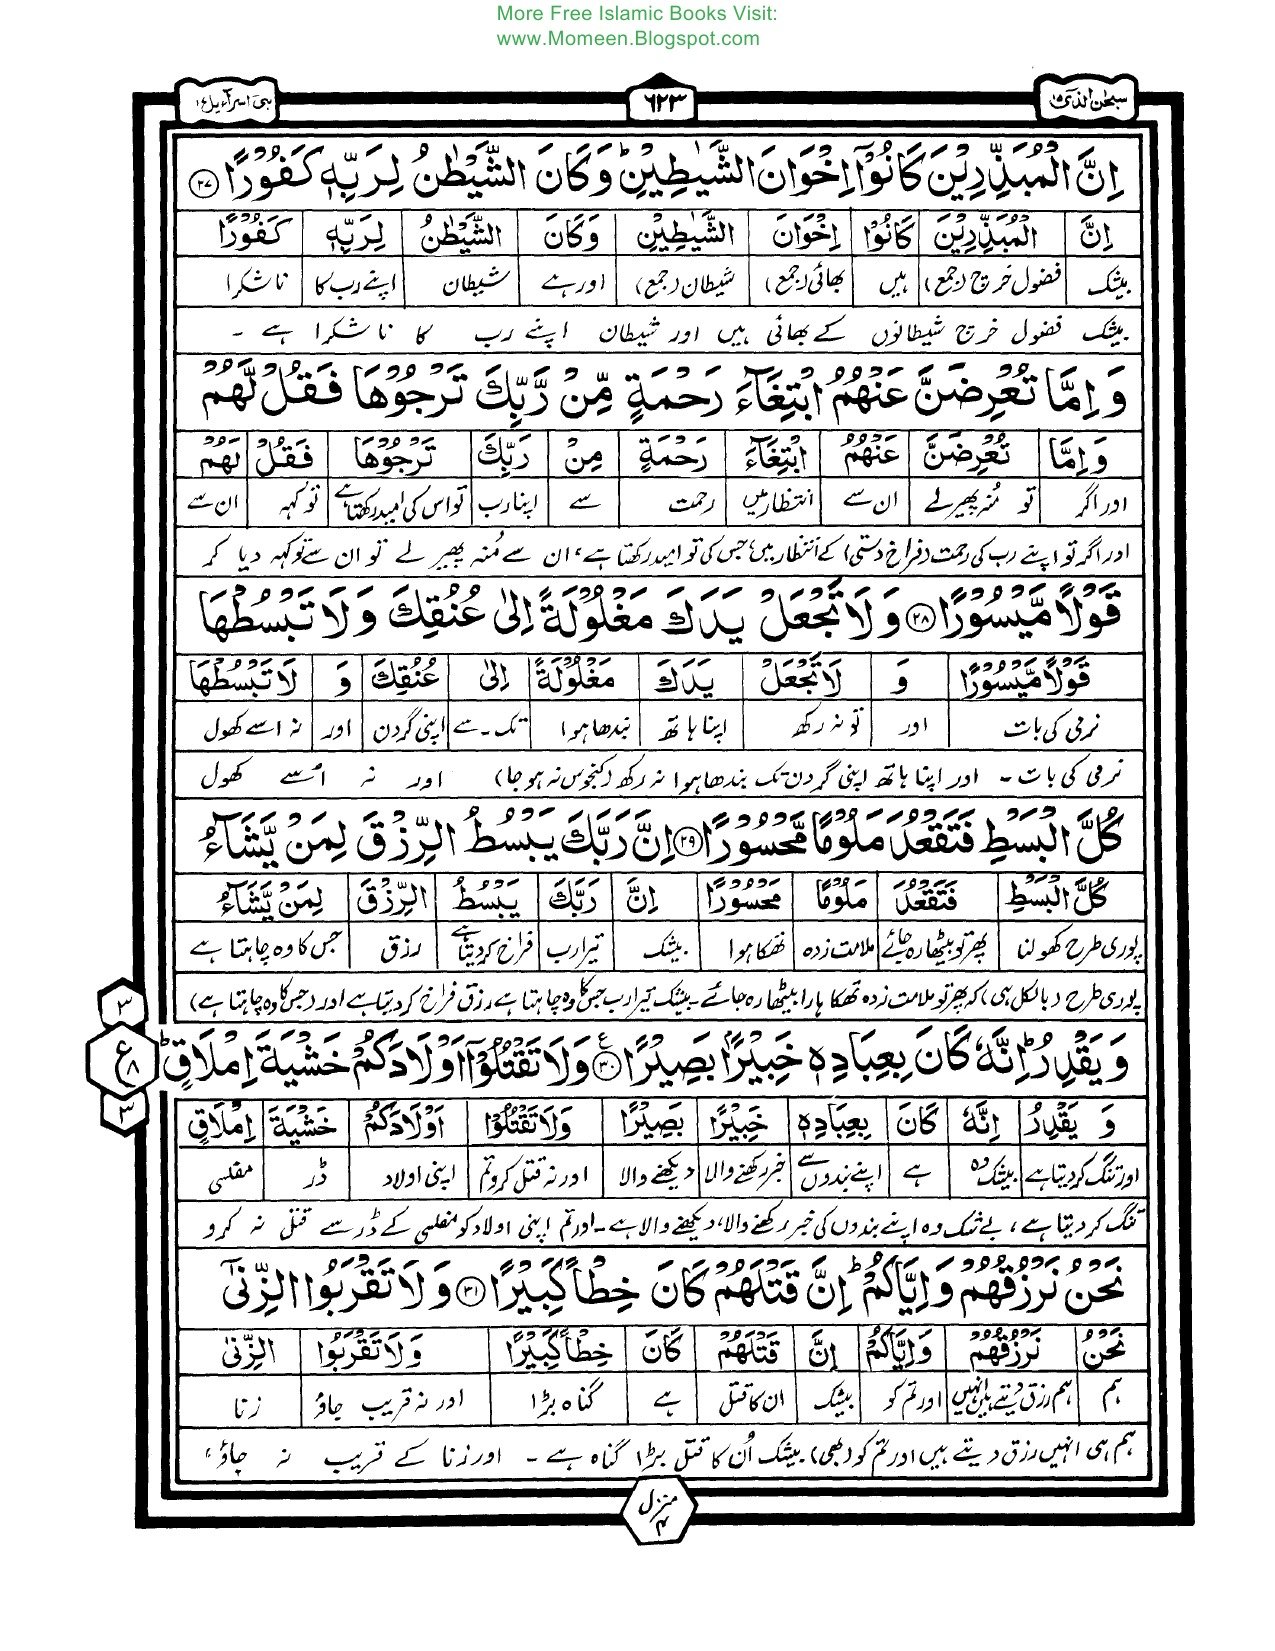 More Free Islamic Books Visit:
www.Momeen.Blogspot.com
سبحن الذی ۱۵ ۶۲۳ بنی اسرآءیل ۱۷
اِنَّ الْمُبَذِّرِیْنَ کَانُوْۤا اِخْوَانَ الشَّیٰطِیْنِ ؕ وَکَانَ الشَّیْطٰنُ لِرَبِّهٖ کَفُوْرًا ﴿۲۷﴾
اِنَّ الْمُبَذِّرِیْنَ کَانُوْا اِخْوَانَ الشَّیٰطِیْنِ وَکَانَ الشَّیْطٰنُ لِرَبِّهٖ کَفُوْرًا
بیشک فضول خرچ (جمع) ہیں بھائی (جمع) شیطان (جمع) اور ہے شیطان اپنے رب کا ناشکرا
بیشک فضول خرچ شیطانوں کے بھائی ہیں اور شیطان اپنے رب کا ناشکرا ہے ۔
وَاِمَّا تُعْرِضَنَّ عَنْهُمُ ابْتِغَآءَ رَحْمَةٍ مِّنْ رَّبِّكَ تَرْجُوْهَا فَقُلْ لَّهُمْ
وَاِمَّا تُعْرِضَنَّ عَنْهُمُ ابْتِغَآءَ رَحْمَةٍ مِنْ رَبِّكَ تَرْجُوْهَا فَقُلْ لَهُمْ
اور اگر تو منہ پھیرلے ان سے انتظار میں رحمت سے اپنا رب تو اس کی امید رکھتا ہے تو کہہ ان سے
اور اگر تو اپنے رب کی رحمت (فراخ دستی) کے انتظار میں جس کی تو امید رکھتا ہے، ان سے مُنہ پھیر لے تو ان سے تو کہہ دیا کر
قَوْلًا مَّیْسُوْرًا ﴿۲۸﴾ وَلَا تَجْعَلْ یَدَكَ مَغْلُوْلَةً اِلٰی عُنُقِكَ وَلَا تَبْسُطْهَا
قَوْلًا مَّیْسُوْرًا وَ لَا تَجْعَلْ یَدَكَ مَغْلُوْلَةً اِلٰی عُنُقِكَ وَ لَا تَبْسُطْهَا
نرمی کی بات اور تو نہ رکھ اپنا ہاتھ بندھا ہوا تک ۔ سے اپنی گردن اور نہ اسے کھول
نرمی کی بات ۔ اور اپنا ہاتھ اپنی گردن تک بندھا ہوا نہ رکھ (کنجوس نہ ہو جا) اور نہ اُسے کھول
کُلَّ الْبَسْطِ فَتَقْعُدَ مَلُوْمًا مَّحْسُوْرًا ﴿۲۹﴾ اِنَّ رَبَّكَ یَبْسُطُ الرِّزْقَ لِمَنْ یَّشَآءُ
کُلَّ الْبَسْطِ فَتَقْعُدَ مَلُوْمًا مَحْسُوْرًا اِنَّ رَبَّكَ یَبْسُطُ الرِّزْقَ لِمَنْ یَّشَآءُ
پوری طرح کھولنا پھر تو بیٹھا رہ جائے ملامت زدہ تھکا ہوا بیشک تیرا رب فراخ کر دیتا ہے رزق جس کا وہ چاہتا ہے
پوری طرح (بالکل ہی) کہ پھر تو ملامت زدہ تھکا ہارا بیٹھا رہ جائے ۔ بیشک تیرا رب جس کا وہ چاہتا ہے رزق فراخ کر دیتا ہے اور (جس کا وہ چاہتا ہے)
۳
ع
۸
۳
وَیَقْدِرُ ؕ اِنَّهٗ کَانَ بِعِبَادِهٖ خَبِیْرًۢا بَصِیْرًا ﴿۳۰﴾ وَلَا تَقْتُلُوْۤا اَوْلَادَکُمْ خَشْیَةَ اِمْلَاقٍ ؕ
وَ یَقْدِرُ اِنَّهٗ کَانَ بِعِبَادِهٖ خَبِیْرًا بَصِیْرًا وَلَا تَقْتُلُوْا اَوْلَادَکُمْ خَشْیَةَ اِمْلَاقٍ
اور تنگ کر دیتا ہے بیشک وہ ہے اپنے بندوں سے خبر رکھنے والا دیکھنے والا اور نہ قتل کرو تم اپنی اولاد ڈر مفلسی
تنگ کر دیتا ہے، بے شک وہ اپنے بندوں کی خبر رکھنے والا، دیکھنے والا ہے ۔ اور تم اپنی اولاد کو مفلسی کے ڈر سے قتل نہ کرو
نَحْنُ نَرْزُقُهُمْ وَاِیَّاکُمْ ؕ اِنَّ قَتْلَهُمْ کَانَ خِطْاً کَبِیْرًا ﴿۳۱﴾ وَلَا تَقْرَبُوا الزِّنٰۤی
نَحْنُ نَرْزُقُهُمْ وَاِیَّاکُمْ اِنَّ قَتْلَهُمْ کَانَ خِطْاً کَبِیْرًا وَلَا تَقْرَبُوا الزِّنٰی
ہم ہم رزق دیتے ہیں انہیں اور تم کو بیشک ان کا قتل ہے گناہ بڑا اور نہ قریب جاؤ زنا
ہم ہی انہیں رزق دیتے ہیں اور تم کو (بھی) بیشک اُن کا قتل بڑا گناہ ہے ۔ اور زنا کے قریب نہ جاؤ،
منزل
۴